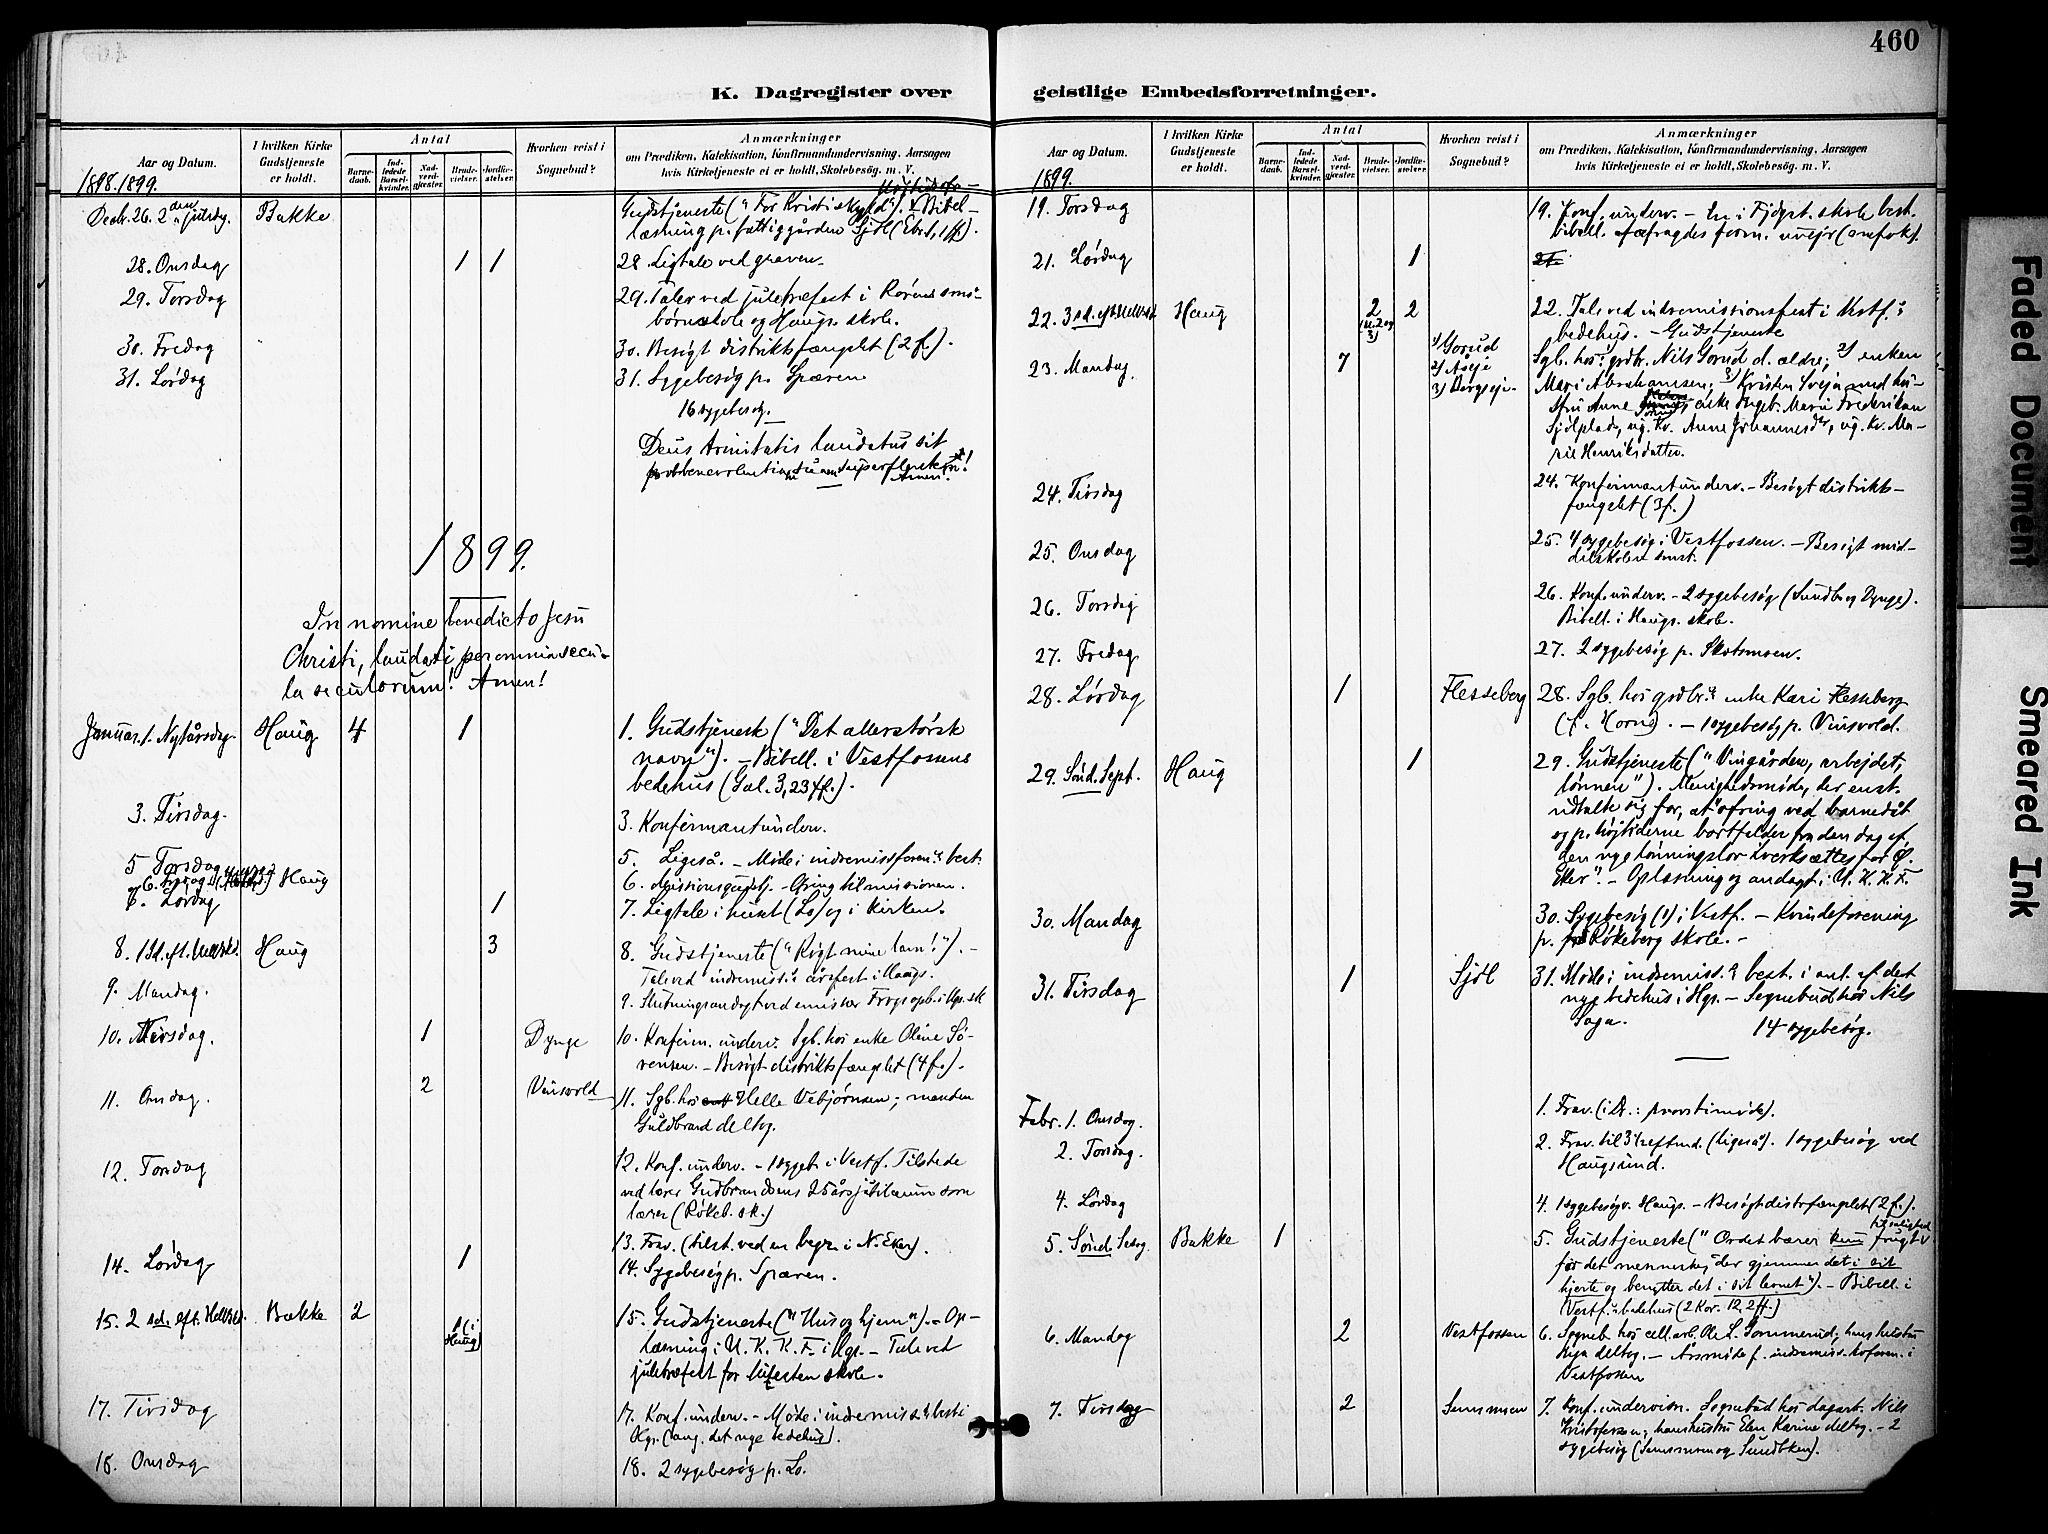 460
K. Dagregister over geistlige Embedsforretninger.
Aar og Datum.
I hvilken Kirke Gudstjeneste er holdt.
Antal
Barnedaab.
Indledede Barselkvinder.
Nadverdgjæster.
Brudevielser.
Jordfæstelser.
Hvorhen reist i Sognebud?
Anmærkninger
om Prædiken, Katekisation, Konfirmandundervisning, Aarsagen
hvis Kirketjeneste ei er holdt, Skolebesøg. m. V.
1898. 1899.
Decbr. 26. 2den juledag. Bakke
Gudstjeneste ("For Kristi skyld"). Bibel-
læsning p. fattiggården Sjöl
28. Onsdag 1 1 28. Ligtale ved graven.
29. Torsdag 29. Taler ved juletræfest i små-
børnskole og Haugs skole.
30. Fredag 30. Besøgt distriktsfængslet (2 f.).
31. Lørdag 31. Sygebesøg p. Spæren
16 sygebesøg.
Deus trinitatis laudatus sit
Amen!
1899.
In nomine benedicto Jesu
Christi, laudati per omnia secu-
la seculorum! Amen!
Januar. 1. Nytårsdag. Haug 4 1 1. Gudstjeneste ("Det allerstørste
navn"). - Bibell. i Vestfossens
bedehus (Gal. 3, 23 ff.).
3. Tirsdag. 3. Konfirmantunderv.
5 Torsdag 5. Ligeså. - Møde i indremissforen.s best.
Haug 6. Missionsgudstj. - Ofring til missionen.
7. Lørdag 1 7. Ligtale i huset (Lo) og i kirken.
8. 1 Sd. eft. Haug 3 8. Gudstjeneste ("Røgt mine lam!"). -
Tale ved indremiss.s årsfest i Haugs.
9. Mandag. 9. Slutningsandagt ved emissær
10. Tirsdag. 1 Dynge 10. Konfirm. underv. Sgb. hos enke Oline Sö-
rensen. - Besøgt distriktsfængslet (4 f.).
11. Onsdag. 2 Vinsvold 11. Sgb. hos Helle Vebjørnsen; manden
Guldbrand deltog.
12. Torsdag 12. Konf. underv. - 1 sygeb. i Vestf. Tilstede
ved lærer Gudbrandsens 25 årsjubilæum som
lærer (Røkeb. sk.)
13. Frav. (tilst. ved en begr. i N. Eker).
14. Lørdag 1 14. Sygebesøg p. Spæren.
15. 2 sd. eft. Bakke 2 1 (i Haug) 15. Gudstjeneste ("Hus og hjem"). - Op-
læsning i U. K. K. F. i Hgs. - Tale ved
juletræfest for skole.
17. Tirsdag 17. Konf. underv. - Møde i indremiss.s best. i
Hgs. (ang. det nye bedehus).
18. Onsdag 18. 2 sygebesøg p. Lo.
Aar og Datum.
I hvilken Kirke Gudstjeneste er holdt.
Antal
Barnedaab.
Indledede Barselkvinder.
Nadverdgjæster.
Brudevielser.
Jordfæstelser.
Hvorhen reist i Sognebud?
Anmærkninger
om Prædiken, Katekisation, Konfirmandundervisning, Aarsagen
hvis Kirketjeneste ei er holdt, Skolebesøg. m. V.
1899.
19. Torsdag 19. Konf. underv. - En i skole best.
bibell. aflagdes form. uvejr (snefok).
21. Lørdag 1
22. 3 sd. eft. Haug 2 2 22. Tale ved indremissionsfest i Vestf.s
bedehus. - Gudstjeneste
23. Mandag. 7 1) Gorud Sgb. hos 1) grdbr. Nils Gorud d. ældre; 2) enken
Mari Abrahamsen; 3) Kristen med hu-
stru Anne, enke Ingeb. Marie Frederiksen
ug. kv. Anne Johannesdr., ug. kv. Ma-
rie Henriksdatter.
24. Tirsdag 24. Konfirmantunderv. - Besøgt distrikts-
fængslet (3 f.)
25. Onsdag 25. 4 sygebesøg i Vestfossen. - Besøgt mid-
delskolen smst.
26. Torsdag 26. Konf. underv. - 2 sygebesøg (Sundby og Dynge).
Bibell. i Haugs skole.
27. Fredag 27. 2 sygebesøg p. Skotsmoen.
28. Lørdag 1 Flesseberg 28. Sgb. hos grdbr.s enke Kari Flesseberg
(f. Horne). - 1 sygebesøg p. Vinsvold.
29. Sönd. Sept. Haug 1 29. Gudstjeneste ("Vingården, arbejdet,
lønnen"). Menighedsmøde, der enst.
udtalte sig for, at ofring ved barnedåb
og p. højtiderne bortfalder fra den dag af,
den nye lønningslov iverksættes for Ø.
Eker". - Oplæsning og andagt i U. K. K. F.
30. Mandag 30. Sygebesøg (1) i Vestf. - Kvindeforening
p. Røkeberg skole. -
31. Tirsdag 1 Sjöl 31. Møde i indremiss.s best. i ant. af det
nye bedehus i Hgs. - Sognebud hos Nils
14 sygebesøg.
Febr. 1. Onsdag. 1. Frav. (i Dr.: provstimøde).
2. Torsdag. 2. Frav. til 3 eftmd. (ligeså). 1 sygebesøg ved
Haugsund.
4. Lørdag 4. 1 sygebesøg v. Haugs. - Besøgt distr.fængslet (2 f.).
5. Sönd. Bakke 1 5. Gudstjeneste ("Ordet bærer kun frugt til salighed
for det menneske, der gjemmer det i sit
hjerte og benytter det i sit levnet"). - Bibell. i
Vestf.s bedehus (2 Kor. 12, 2 ff.)
6. Mandag 2 Vestfossen 6. Sogneb. hos cell.arb. Ole L. Sommerud; hans hustru
deltog. - Årsmøde f. indremiss.foren. i
Vestfossen
7. Tirsdag 2 Semsmoen 7. Konf. undervisn. Sognebud hos dagarb. Nils
Kristofersen; hans hustru Elen Karine deltog. - 2
sygebesøg (Semsmoen og Sundbken).
Faded Document
Smeared Ink